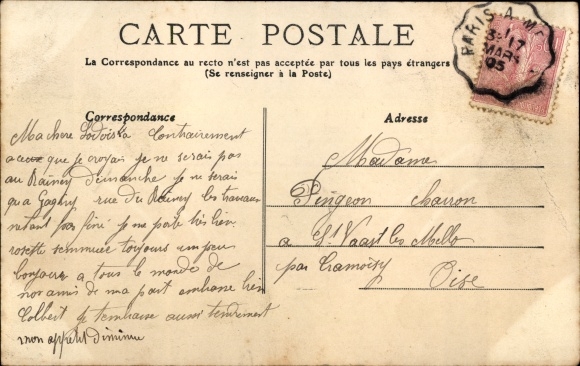 CARTE POSTALE
La Correspondance au recto n'est pas acceptée par tous les pays étrangers
(Se renseigner à la Poste)
PARIS A M
3 17
MARS
05
Correspondance
Ma chere Lodoiska Contrairement
a ceux que je croyais je ne serais pas
au Rainey dimanche je ne serai
qu'a Gagny rue du Rainey les travaux
n'tant pas fini je me porte très bien
rosette ennuiee toujours un peu
bonjour a tous le monde de
nos amis de ma part embrasse bien
Colbert je tembrasse aussi tendrement
mon appétit diminue
Adresse
Madame
Pingeon charron
a St Vaast les Mello
par Cramoisy
Oise